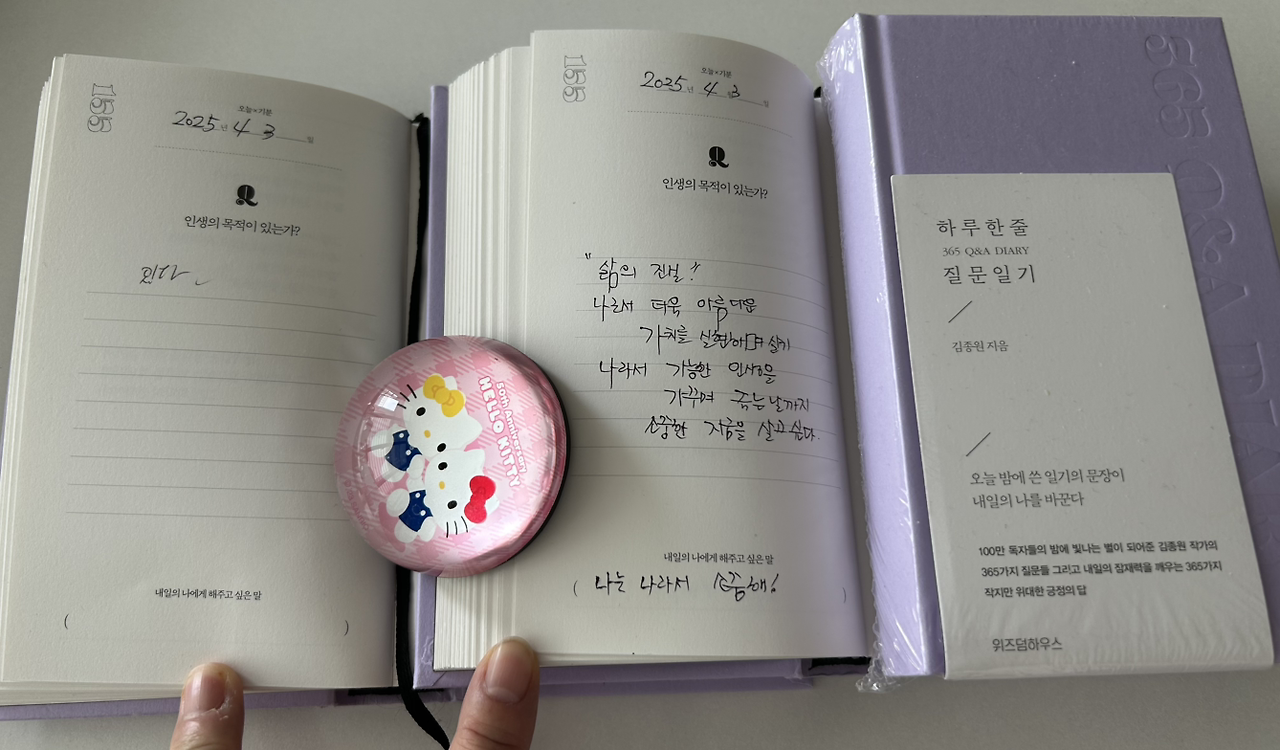 155
오늘×기분
2025년 4 3 일
Q
인생의 목적이 있는가?
있다.
내일의 나에게 해주고 싶은 말
( )
155
오늘×기분
2025년 4 3 일
Q
인생의 목적이 있는가?
"삶의 진실"
나라서 더욱 아름다운
가치를 실현하며 살기
나라서 가능한 인생을
가꾸며 죽는날까지
소중한 지금을 살고 싶다.
내일의 나에게 해주고 싶은 말
( 나는 나라서 소중해! )
50th Anniversary
HELLO KITTY
365 Q&A DIARY
하루 한 줄
365 Q&A DIARY
질문 일기
김종원 지음
오늘 밤에 쓴 일기의 문장이
내일의 나를 바꾼다
100만 독자들의 밤에 빛나는 별이 되어준 김종원 작가의
365가지 질문들 그리고 내일의 잠재력을 깨우는 365가지
작지만 위대한 긍정의 답
위즈덤하우스